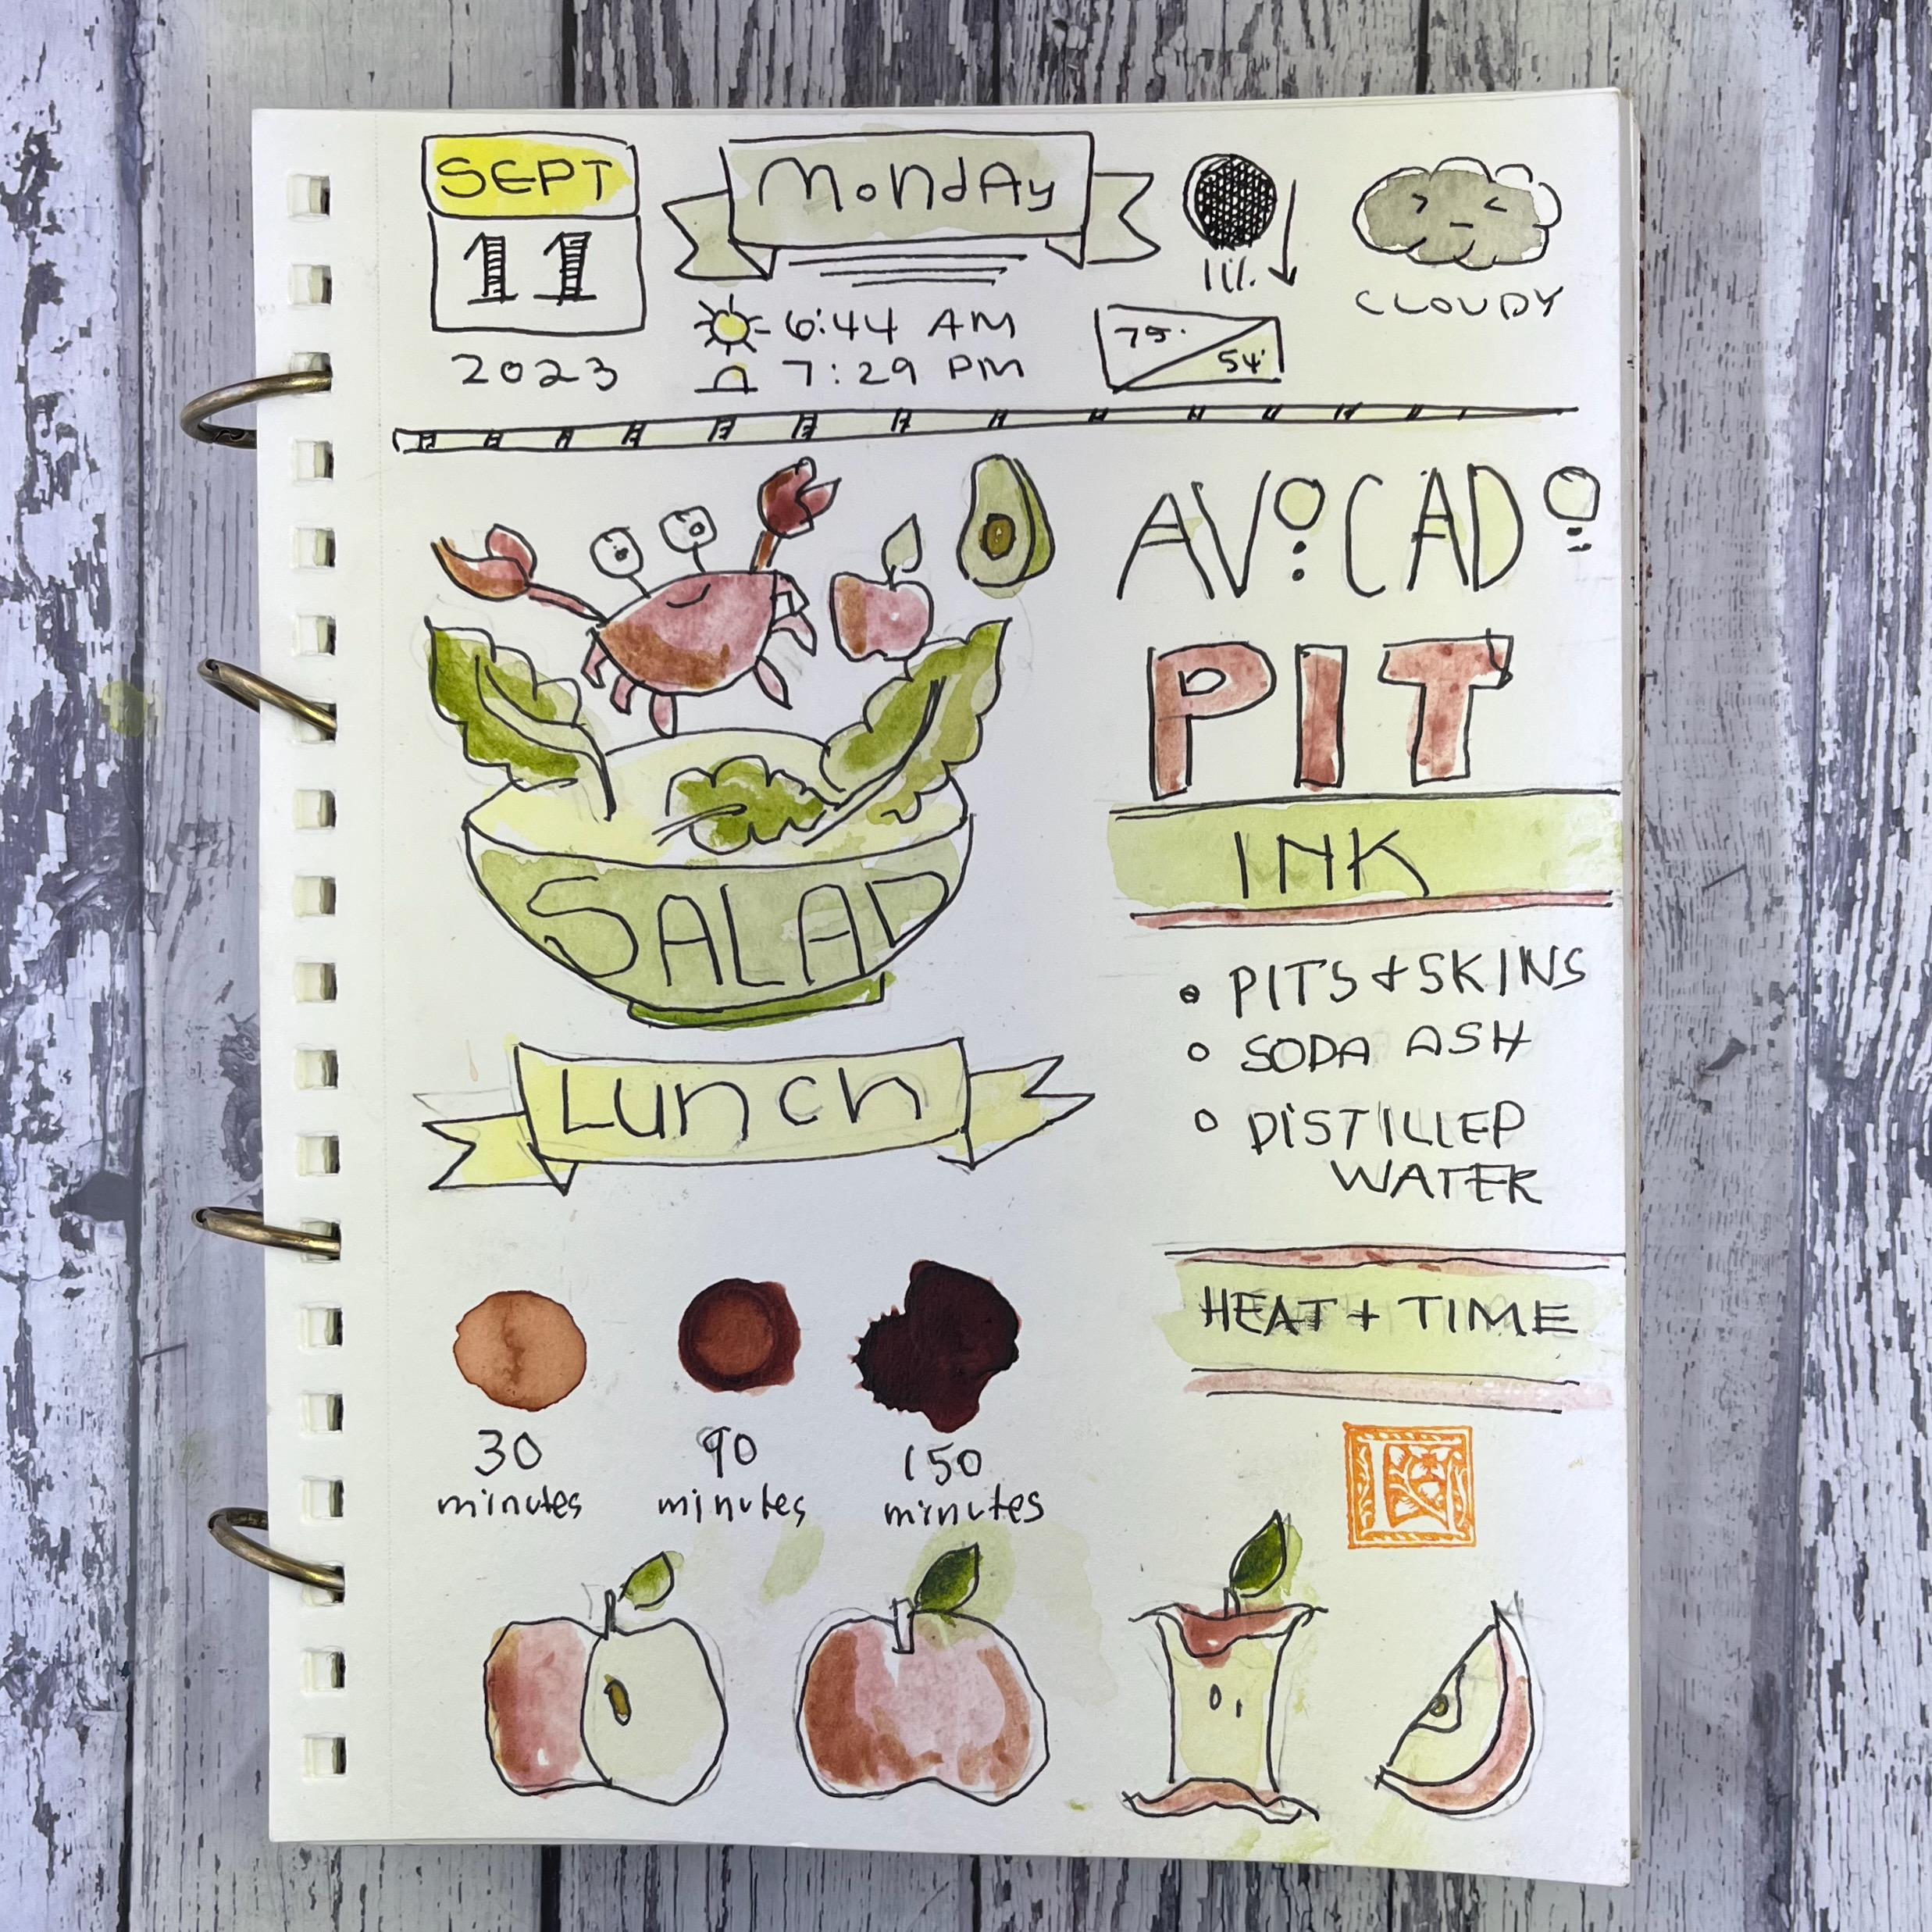 SEPT
11
2023
Monday
6:44 AM
7:29 PM
75°
54°
CLOUDY
AVOCADO
PIT
INK
PITS + SKINS
SODA ASH
DISTILLED
WATER
HEAT + TIME
SALAD
Lunch
30
minutes
90
minutes
150
minutes